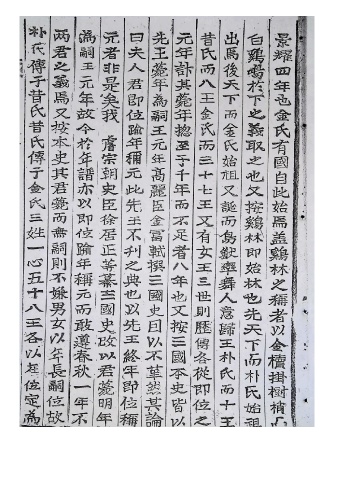 景耀四年也金氏有國自此始焉盖雞林之稱者以金櫝掛樹梢
白鷄鳴於下之義取之也又按鷄林即始林也先天下而朴氏始祖
出焉後天下而金氏始祖又誕而鳥獸率舞人意歸王朴氏而十王
昔氏而八王金氏而三十七王又有女王三世則歷傳各從即位之
元年計其薨年揔至于千年而不足者八年也又按三國本史皆以
先王薨年為嗣王元年高麗臣金富軾撰三國史曰以不革然其論
曰夫人君即位踰年稱元此先王不刊之典也以先王終年即位稱
元者非是矣我 宗朝史臣徐居正等纂三國史改以君薨明年
為嗣王元年故今於年譜亦以即位踰年稱元而敢遵春秋一年不
兩君之義焉又按本史其君薨而無嗣則不嫌男女以年長嗣位故
朴氏傳子昔氏昔氏傳子金氏三姓一心五十八王各以年位定為